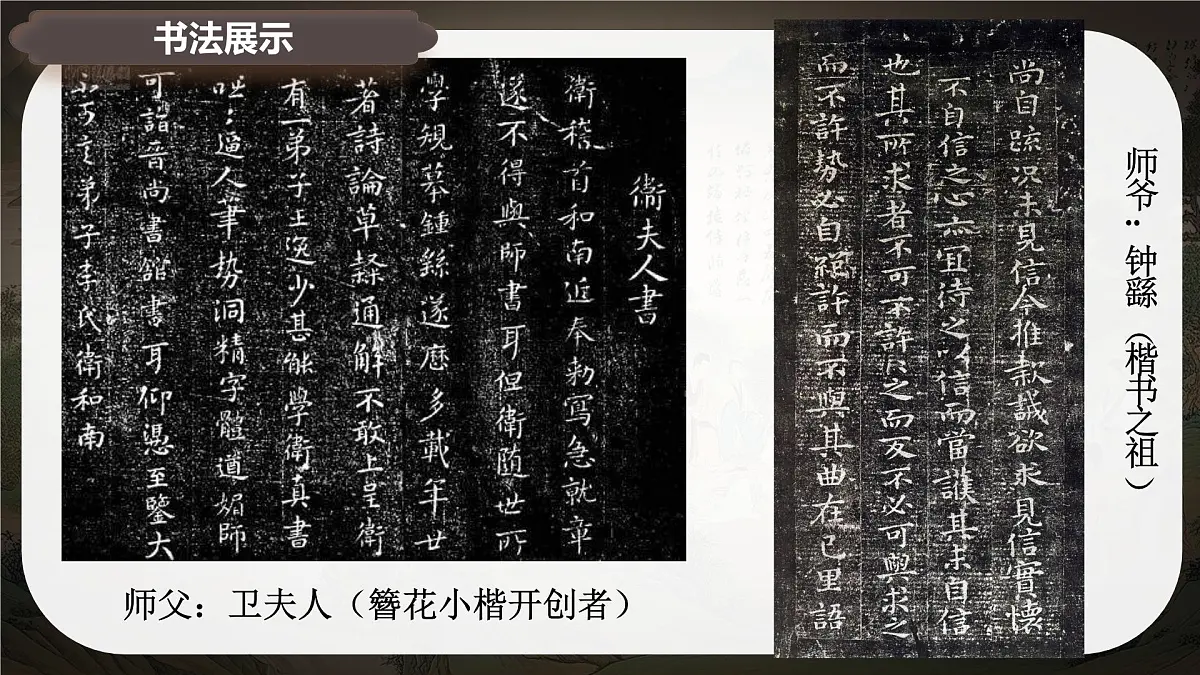 书法展示
衛夫人書
衛稽首和南近奉勅寫急就章
遂不得與師書耳但衛随世所
學規摹鍾繇遂歷多載年廿
著詩論草隸通解不敢上呈衛
有一弟子王逸少甚能學衛真書
咄：逼人筆势洞精字體遒媚師
可詣晉尚書館書耳仰憑至鑒大
不可言弟子李氏衛和南
师父：卫夫人（簪花小楷开创者）
尚自疏况未見信今推款誠欲求見信實懷
不自信之心亦宜待之以信而當護其未自信
也其所求者不可不許許之而反不必可與求之
而不許勢必自絕許而不與其曲在己里語
师爷：钟繇（楷书之祖）